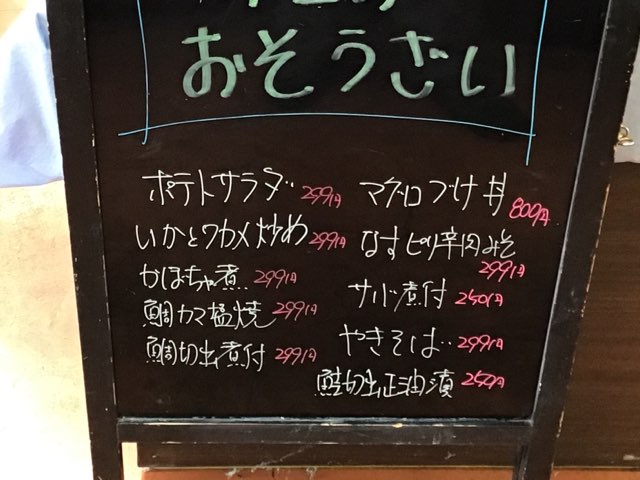 おそうざい
ポテトサラダ 299円
いかとワカメ炒め 299円
かぼちゃ煮 299円
鯛カマ塩焼 299円
鯛切出煮付 299円
マグロづけ丼 800円
なすピリ辛肉みそ
299円
サバ煮付 250円
やきそば 299円
鮭切出正油漬 250円